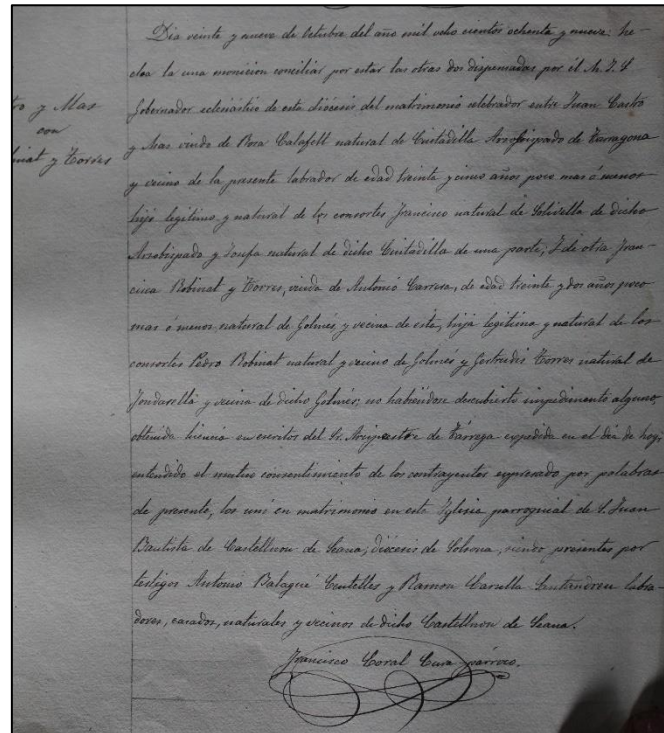 Dia veinte y nueve de Octubre del año mil ocho cientos ochenta y nueve: he-
cha la una monicion conciliar por estar las otras dos dispensadas por él M. I. S
Gobernador eclesiástico de esta diócesis del matrimonio celebrador entre Juan Castro
y Mas viudo de Rosa Calafell natural de Ciutadilla Arzobispado de Tarragona
y vecino de la presente labrador de edad treinta y cinco años poco mas ó menos
hijo legítimo y natural de los consortes Francisco natural de Solivella de dicho
Arzobispado y Josefa natural de dicho Ciutadilla de una parte; I de otra Fran-
cisca Robinat y Torres, viuda de Antonio Carrera, de edad treinta y dos años poco
mas ó menos, natural de Golmés, y vecina de esta, hija legítima y natural de los
consortes Pedro Robinat natural y vecino de Golmes y Gertrudis Torres natural de
Fondarella y vecina de dicho Golmés; no habiéndose descubierto impedimento alguno,
obtenida licencia en escritos del Sr. Arcipestre de Tárrega expedida en el dia de hoy,
entendido el mutuo consentimiento de los contrayentes expresado por palabras
de presente, los uní en matrimonio en esta Iglesia parroquial de S. Juan
Bautista de Castellnou de Seana, diócesis de Solsona, siendo presentes por
testigos Antonio Balagué Centelles y Ramon Santandreu labra-
dores, casados, naturales y vecinos de dicho Castellnou de Seana.
Francisco Coral Cura-párroco.
tro y Mas
con
binat y Torres